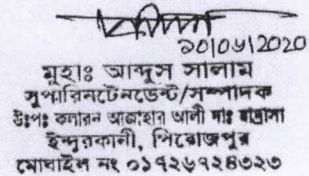 ১০/০৬/2020
মুহাঃ আব্দুস সালাম
সুপারিনটেনডেন্ট/সম্পাদক
উঃপঃ কলারন আজাহার আলী দাঃ মাদ্রাসা
ইন্দুরকানী, পিরোজপুর
মোবাইল নং ০১৭২৬৭২৪৩২৩